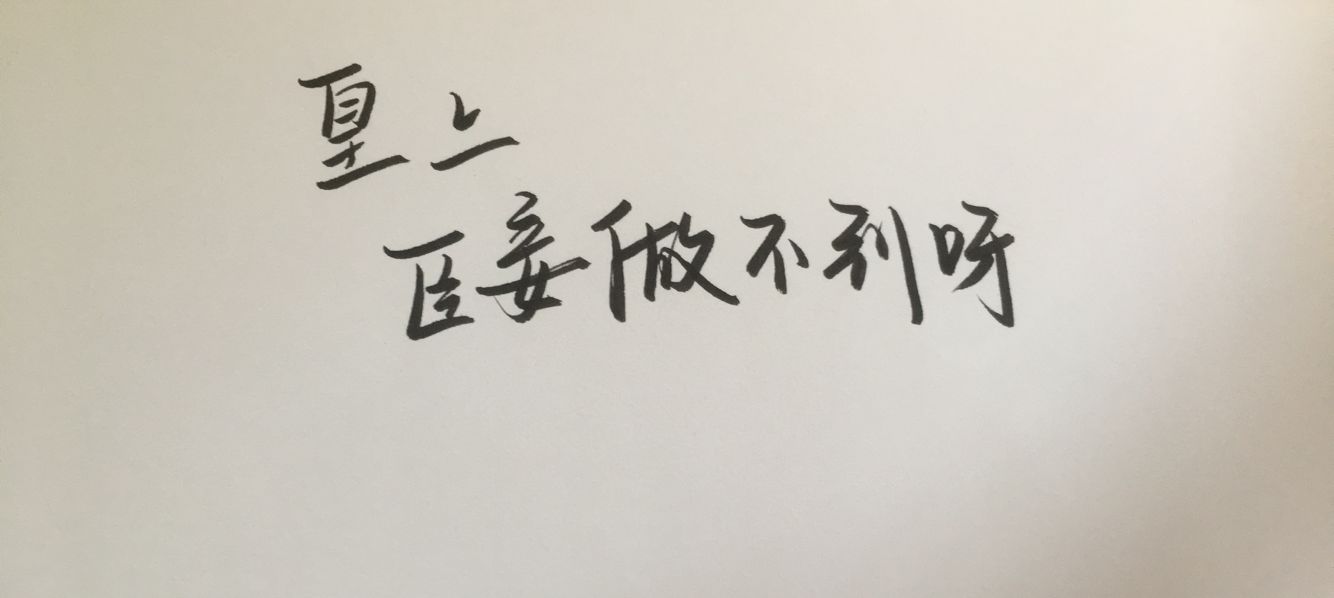 皇上
臣妾做不到呀